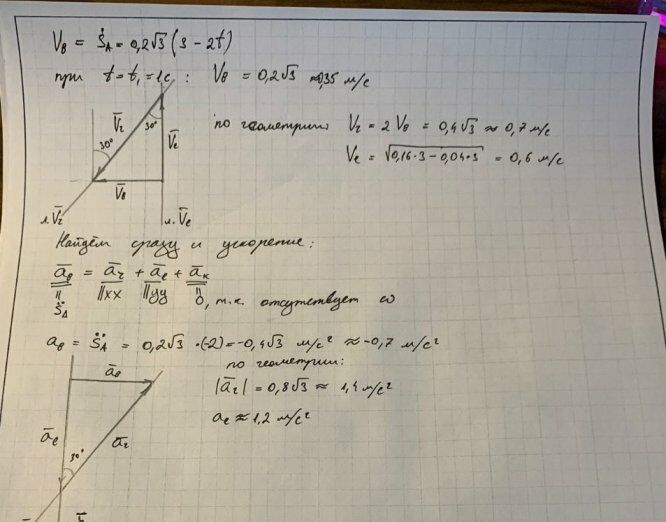 V_в = Ṡ_A = 0,2√3 (3 - 2t)
при t = t₁ = 1с : V_в = 0,2√3 ≈ 0,35 м/с
30° V̄_r 30° V̄_e
V̄_в
л. V̄_r л. V̄_e
по геометрии: V_r = 2 V_в = 0,4√3 ≈ 0,7 м/с
V_e = √(0,16·3 - 0,04·3) = 0,6 м/с
Найдём сразу и ускорение:
ā_в = ā_r + ā_e + ā_к
|| ||xx ||yy || 0, т.к. отсутствует ω
S̈_A
a_в = S̈_A = 0,2√3 ·(-2) = -0,4√3 м/с² ≈ -0,7 м/с²
по геометрии:
ā_в
|ā_r| = 0,8√3 ≈ 1,4 м/с²
a_e ≈ 1,2 м/с²
ā_e ā_r
30°